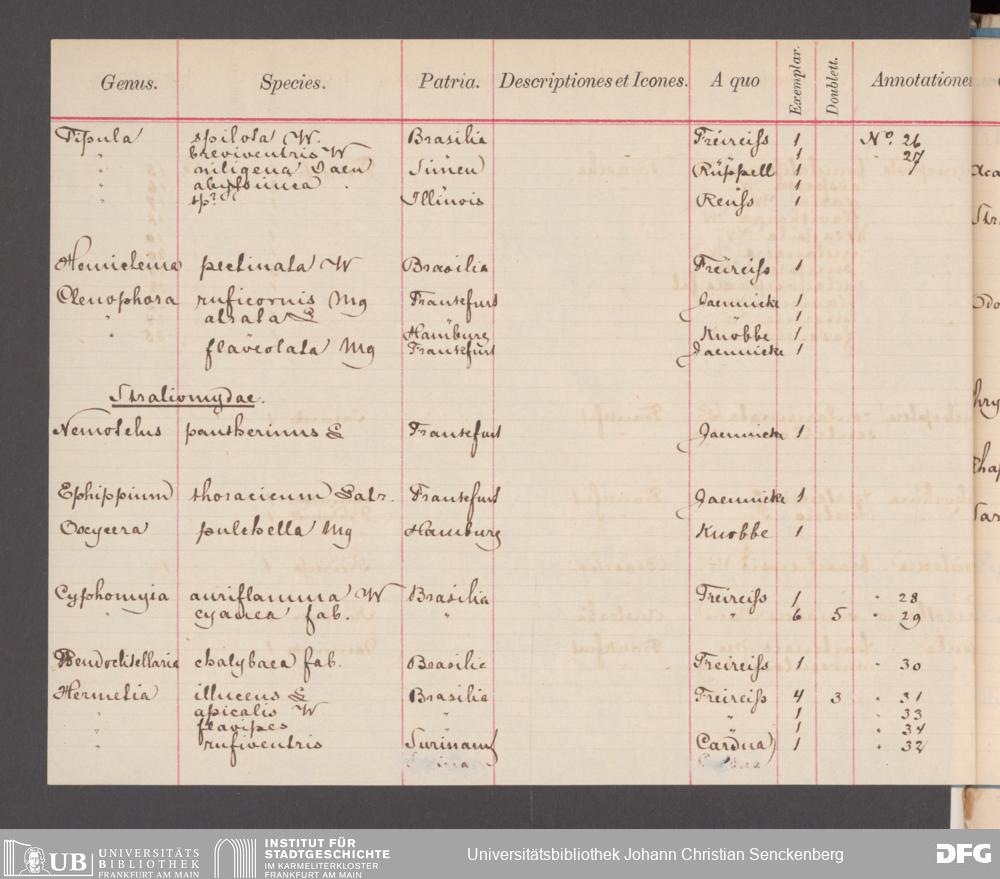 Genus. Species. Patria. Descriptiones et Icones. A quo Exemplar. Doublett. Annotationes
Tipula spilota W. Brasilia Freireiss 1 No. 26
" breviventris W 1 " 27
" niligena Jaen Simen Rüppell 1
" abyssinica 1
" sp? Illinois Reuss 1
Hemicteina pectinata W Brasilia Freireiss 1
Ctenophora ruficornis Mg Frankfurt Jaennicke 1
" atrata L 1
" Hamburg Knobbe 1
flaveolata Mg Frankfurt Jaennicke 1
Stratiomydae.
Nemotelus pantherinus L Frankfurt Jaennicke 1
Ephippium thoracicum Latr. Frankfurt Jaennicke 1
Oxycera pulchella Mg Hamburg Knobbe 1
Cyphomyia auriflamma W Brasilia Freireiss 1 " 28
cyanea fab. " " 6 5 " 29
chalybaea fab. Brasilia Freireiss 1 " 30
Hermetia illucens L Brasilia Freireiss 4 3 " 31
" apicalis W " " 1 " 33
" flavipes 1 " 34
" rufiventris Surinam 1 " 32
UB UNIVERSITÄTS
BIBLIOTHEK
FRANKFURT AM MAIN
INSTITUT FÜR
STADTGESCHICHTE
IM KARMELITERKLOSTER
FRANKFURT AM MAIN
Universitätsbibliothek Johann Christian Senckenberg
DFG